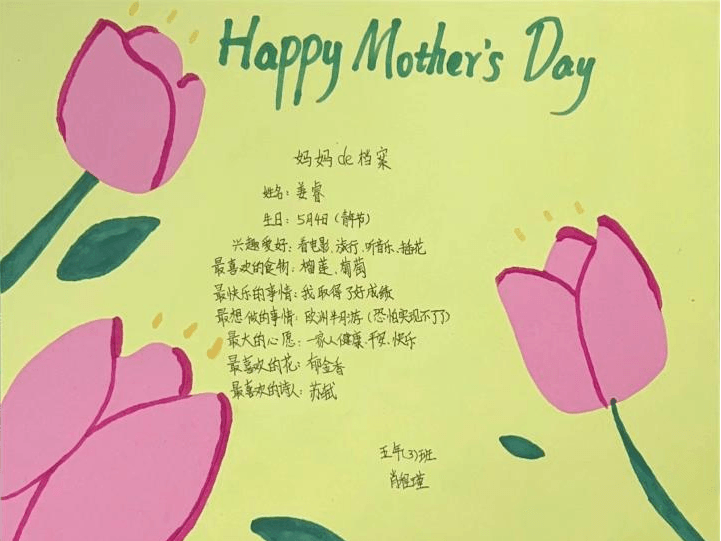 Happy Mother's Day
妈妈de档案
姓名：姜睿
生日：5月4日（青年节）
兴趣爱好：看电影、旅行、听音乐、插花
最喜欢的食物：榴莲、葡萄
最快乐的事情：我取得了好成绩
最想做的事情：欧洲半月游（恐怕实现不了了）
最大的心愿：一家人健康、平安、快乐
最喜欢的花：郁金香
最喜欢的诗人：苏轼
五年(3)班
肖